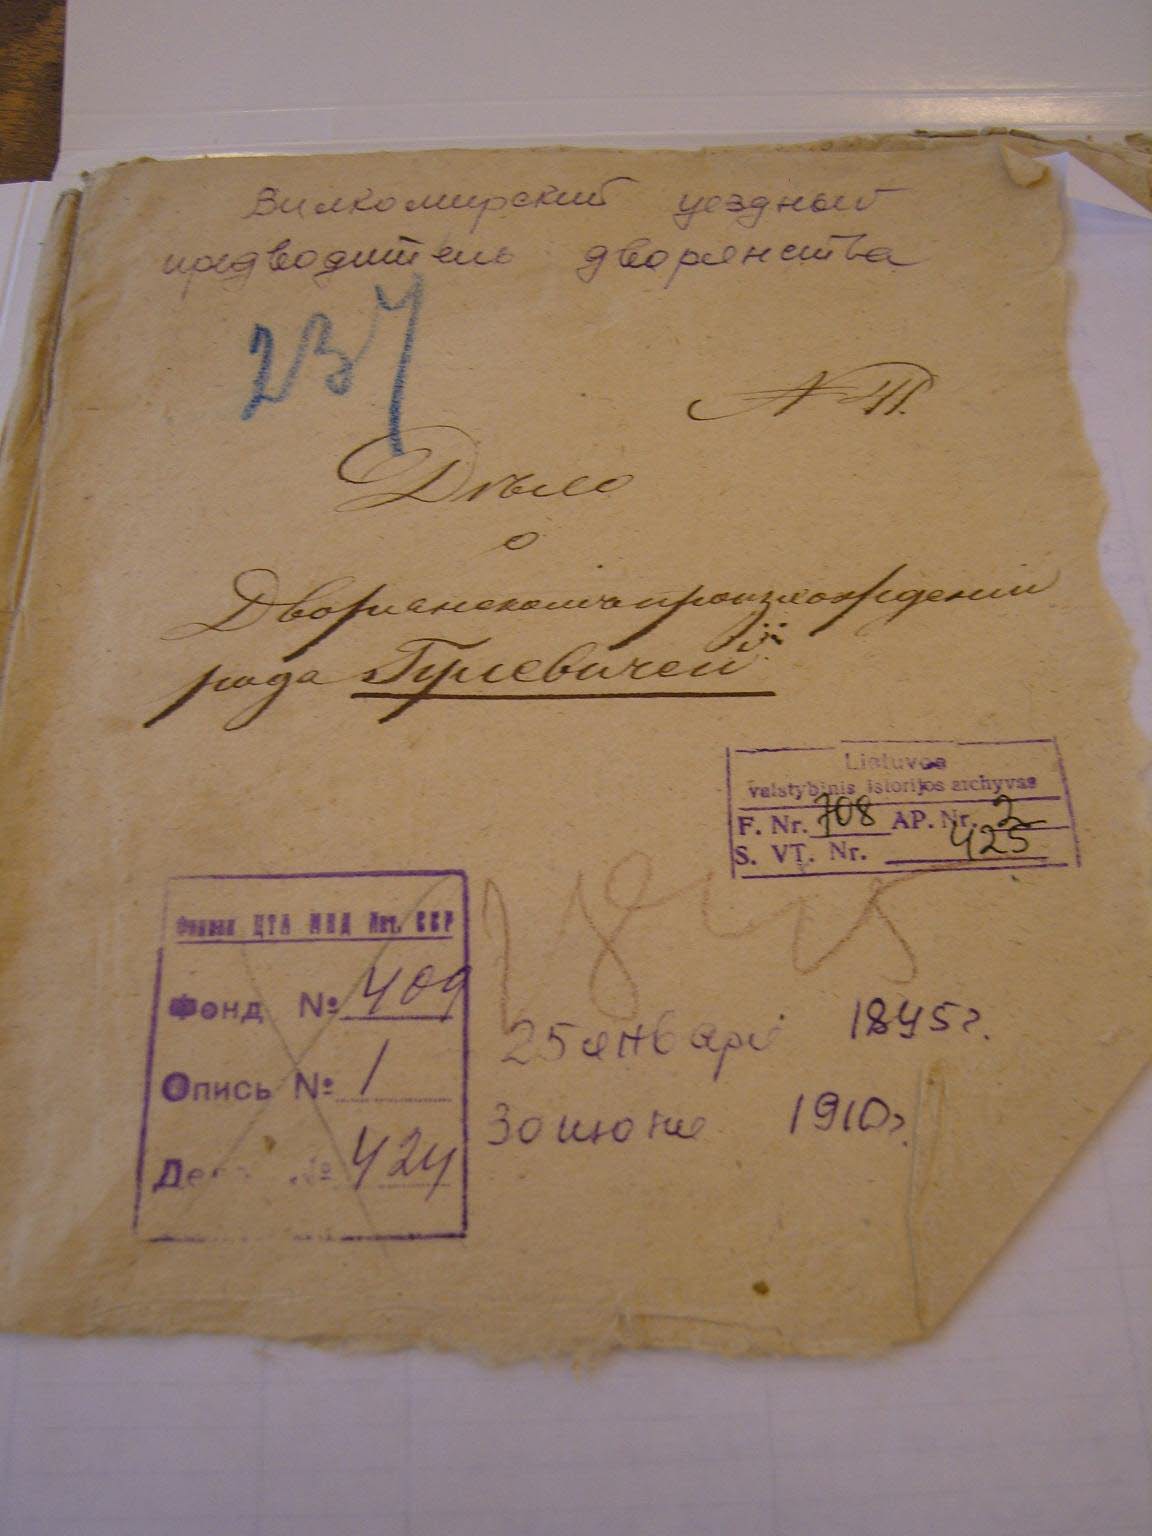 Вилкомирский уездный
предводитель дворянства
237
Дѣло
о
Дворянскомъ происхожденіи
рода Гулевичей
Lietuvos
valstybinis istorijos archyvas
F. Nr. 708 AP. Nr. 2
S. VT. Nr. 425
ЦГА МВД Лит. ССР
Фонд № 409
Опись № 1
Дело № 424
25 января 1845 г.
30 июня 1910 г.